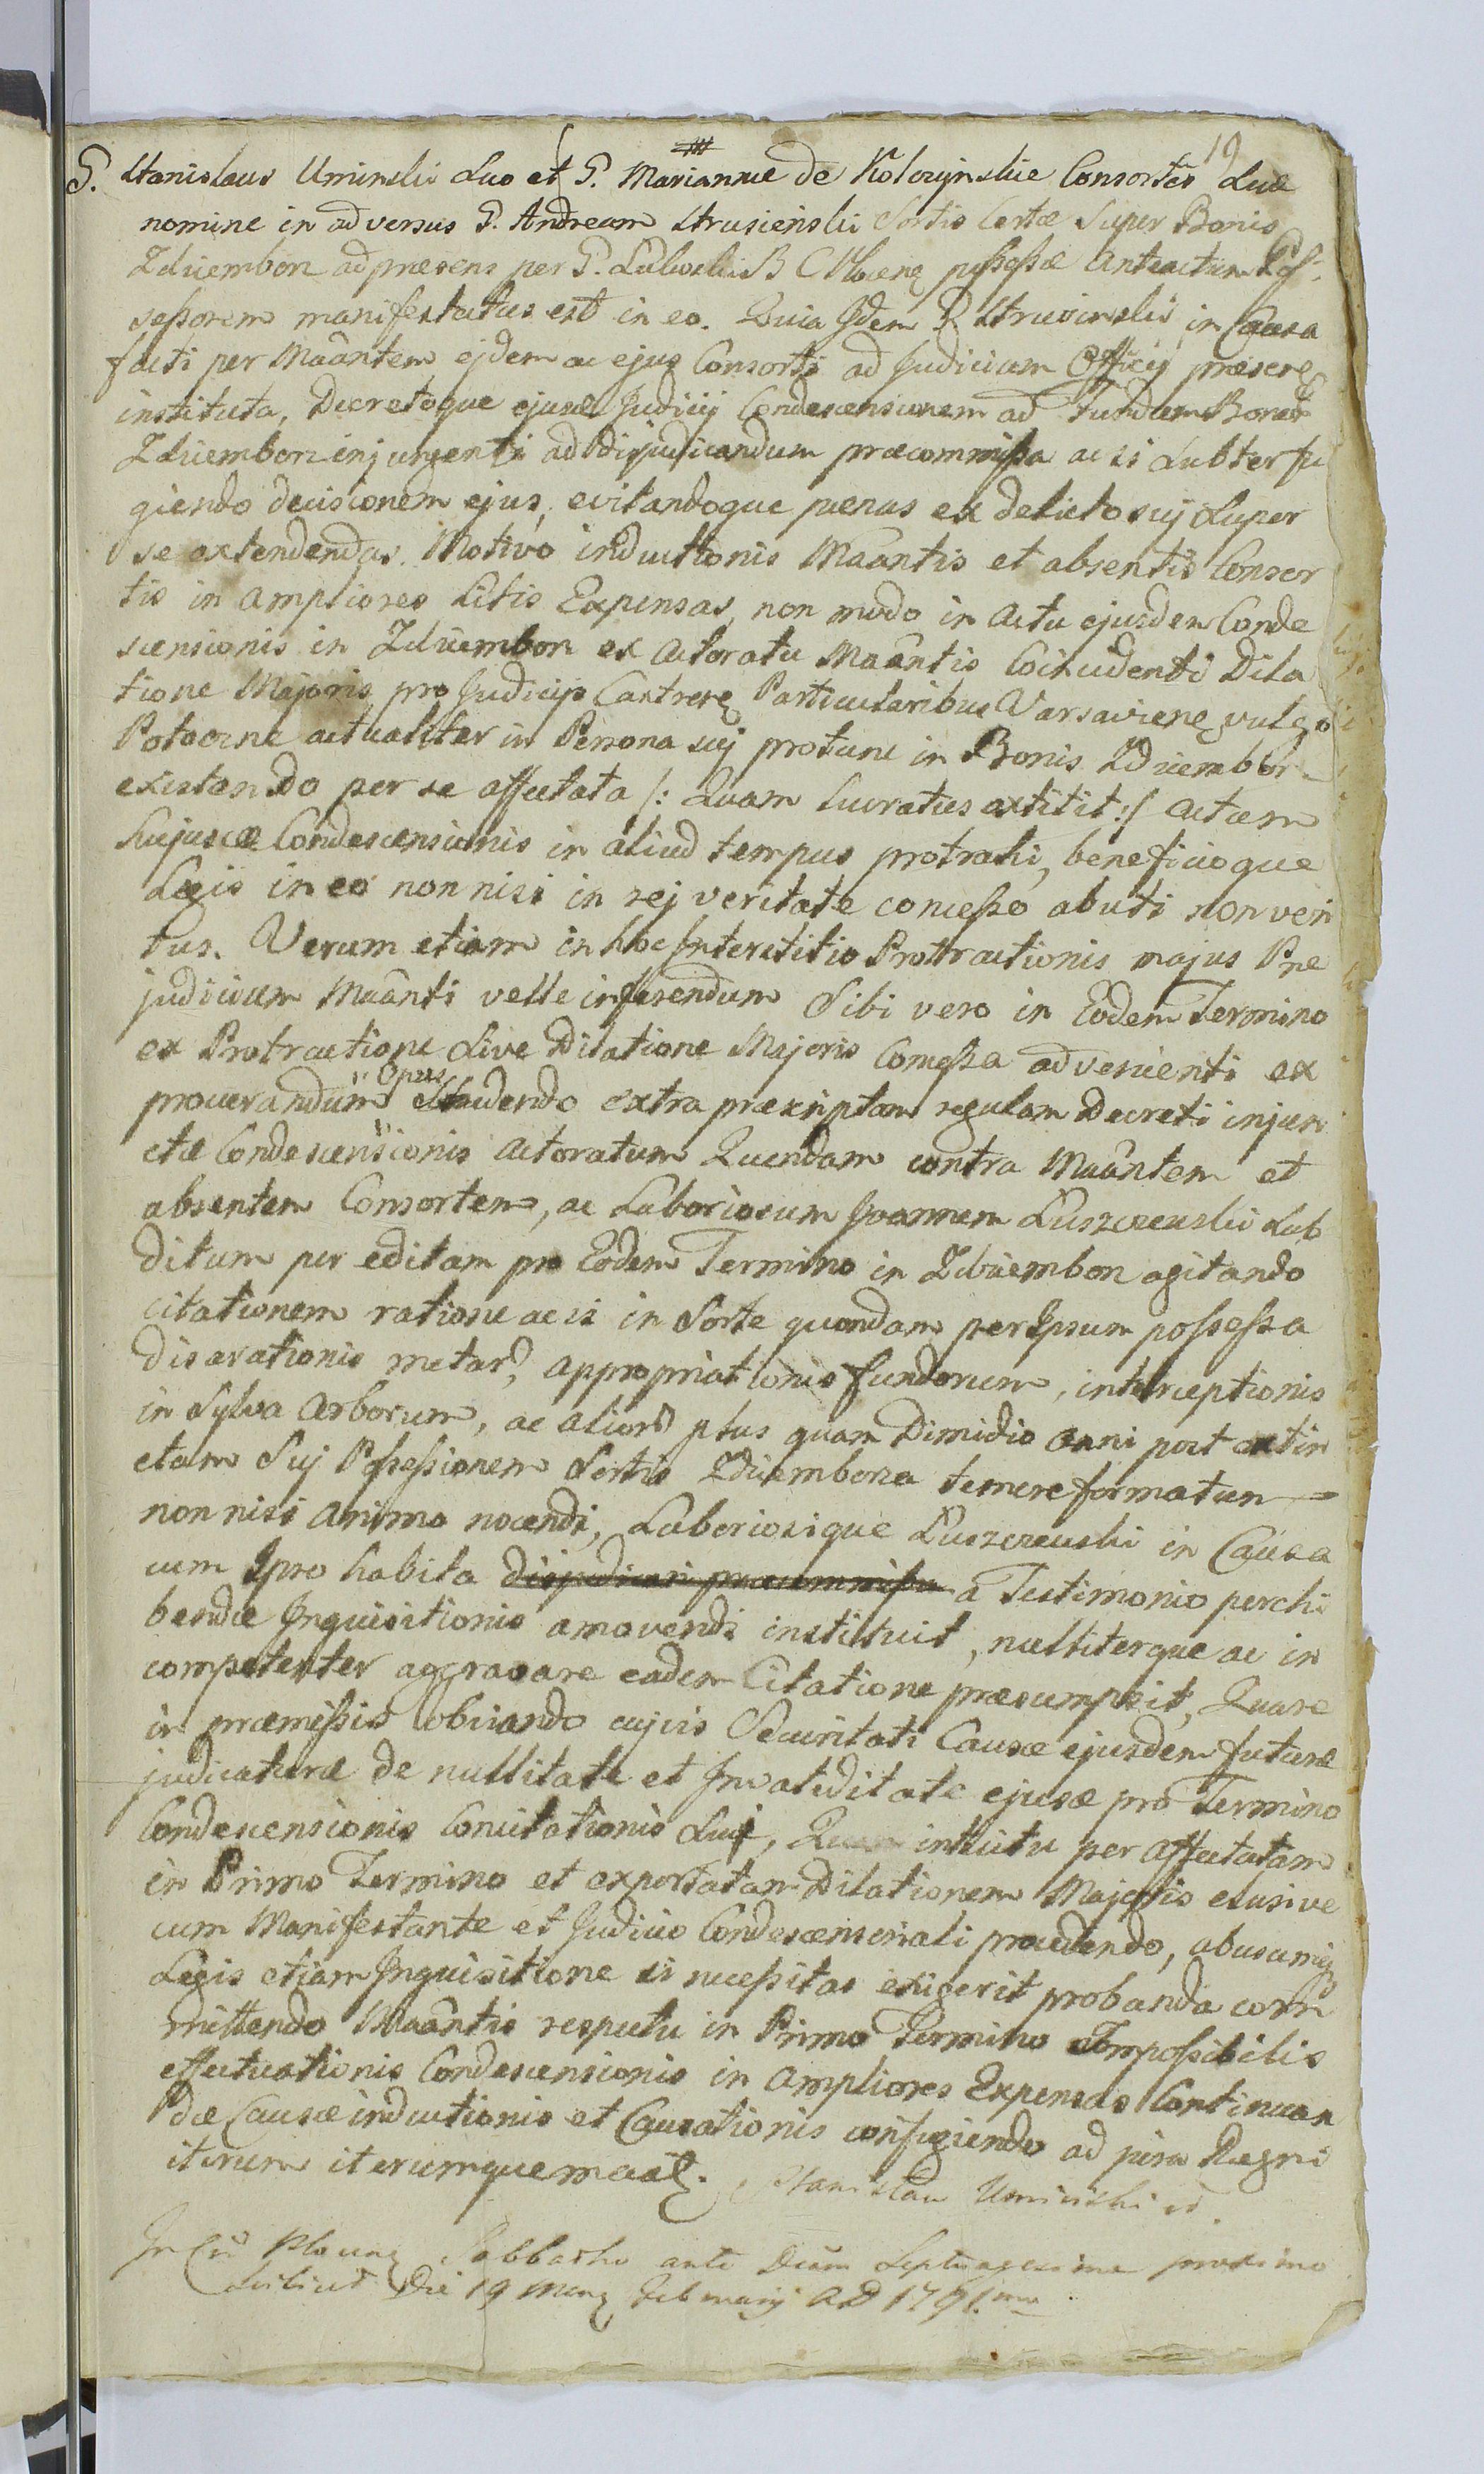 19
G. Stanislaus Uminski Suo et G. Mariannæ de Kolczynskie Consortis Suæ
nomine in adversus G. Andream Strusienski Sortis Certæ Super Bonis
Zdziembor ad præsens per G. Lubo B C Plocen possessæ Anteactum Pos-
sessorem manifestatus est in eo. Quia Idem G Strusinski in Causa
facti per Maântem ejdem ac ejus Consorti ad Judicium Officij præsens
instituta, Decretoque ejusd Judicij Condescensionem ad Fundum Bonor
Zdziembor injungenti ad Disjudicandum præcommissa ac si Subterfu
giendo decisionem ejus, evitandoque pænas ex delicto suj Super
se extendendas. Motivo inductionis Maântis et absentis Consor
tis in ampliores Litis Expensas, non modo in Actu ejusdem Conde
scensionis in Zdziembor ex Actoratu Maântis Coincidenti Dila
tione Majoris pro Judicijs Castren Particularibus Varsavien vulgo
Potoczne actualiter in Persona suj protunc in Bonis Zdziembor
existendo per se affectata /: Quam lucratus extitit :/ actum
hujuscæ Condescensionis in aliud tempus protrahi, beneficioque
Legis in eo non nisi in rej veritate concesso abuti non veri
tus. Verum etiam in hoc Interstitio Prottractionis majus Præ
judicium Maânti velle inferendum Sibi vero in Eodem Termino
ex Protractione Sive Dilatione Majoris Comessa advenienti ex
procurandum Opus Studendo extra præscriptam regulam Decreti injun
ctæ Condescensionis Actoratum Quendam contra Maântem et
absentem Consortem, ac Laboriosum Joannem Luszczewski Sub
ditum per editam pro Eodem Termino in Zdziembor agitando
citationem ratione ac si in Sorte quondam per Ipsum possessa
disarationis metar, appropriationis fundorum, interceptionis
in Sylva Arborum, ac alior plus quam Dimidio anni post extin
ctam Suj Possessionem Sortis Zdziembora temere formatum
non nisi animo nocendi, Laboriosique Luszczewski in Causa
cum Ipso habita disjudicari præcommissa a Testimonio perchi
bendæ Inquisitionis amovendi instituit, nulliterque ac in
competenter aggravare eadem Citatione præsumpsit, Quare
in præmissis obviando cujvis Securitati Causæ ejusdem futuræ
judicaturæ de nullitate et Invaliditate ejusæ pro Termino
Condescensionis Concitationis Suj, intuitu per affectatam
in Primo Termino et exportatam Dilationem Majoris elusive
cum Manifestante et Judicio Condescensoriali procedendo, abusumq
Legis etiam Inquisitione si necessitas exigerit probanda com
mittendo Maântis respectu in Primo Termino Impossibilis
effectuationis Condescensionis in ampliores Expensas Continuan
dæ Causæ inductionis et Causationis confugiendo ad jura Regni
iterum iterumque maât. Stanislaw Uminski
In Plocen Sabbatho ante Dnicam Septuagesima proximo
Scilicet Die 19 Mens Februarij A D 1791.mo